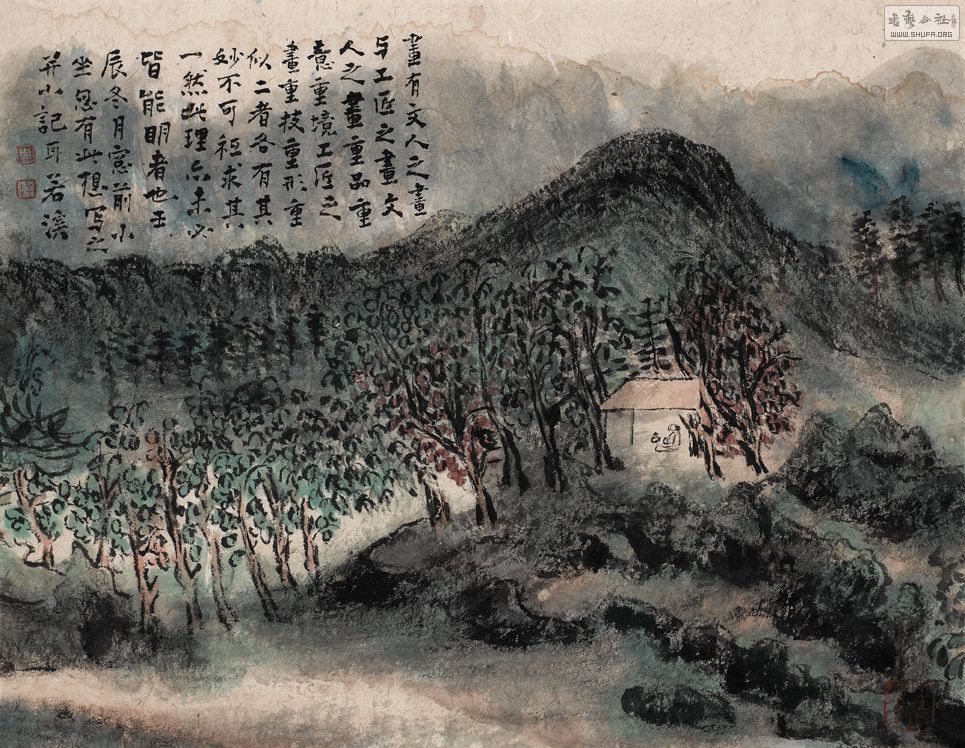 畫有文人之畫
与工匠之畫文
人之畫重品重
意重境工匠之
畫重技重形重
似二者各有其
妙不可祗求其
一然此理亦未必
皆能明者也壬
辰冬月窓前小
坐忽有此想写之
并小記耳若溪
書藝公社
WWW.SHUFA.ORG